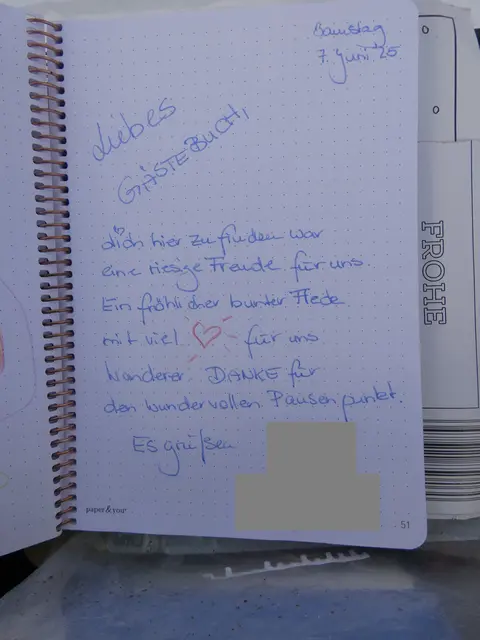 Samstag
7. Juni 25
Liebes
GÄSTEBUCH,
dich hier zu finden war
eine riesige Freude für uns.
Ein fröhlicher bunter Fleck
mit viel ♡ für uns
Wanderer. DANKE für
den wundervollen Pausenpunkt.
Es grüßen
paper&you
51
FROHE